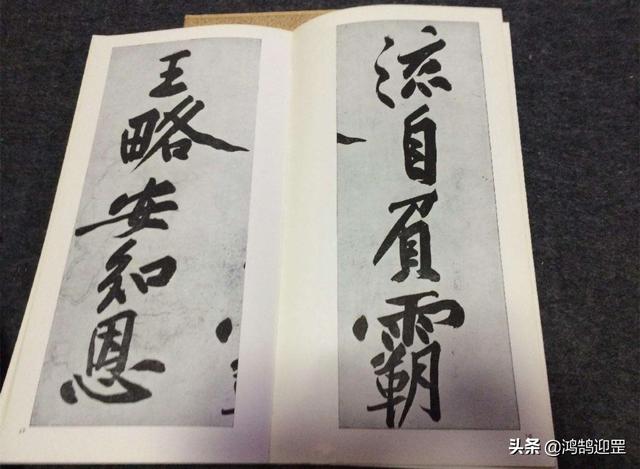 流自負霸
王略安知恩
头条 @鸿鹄迎罡